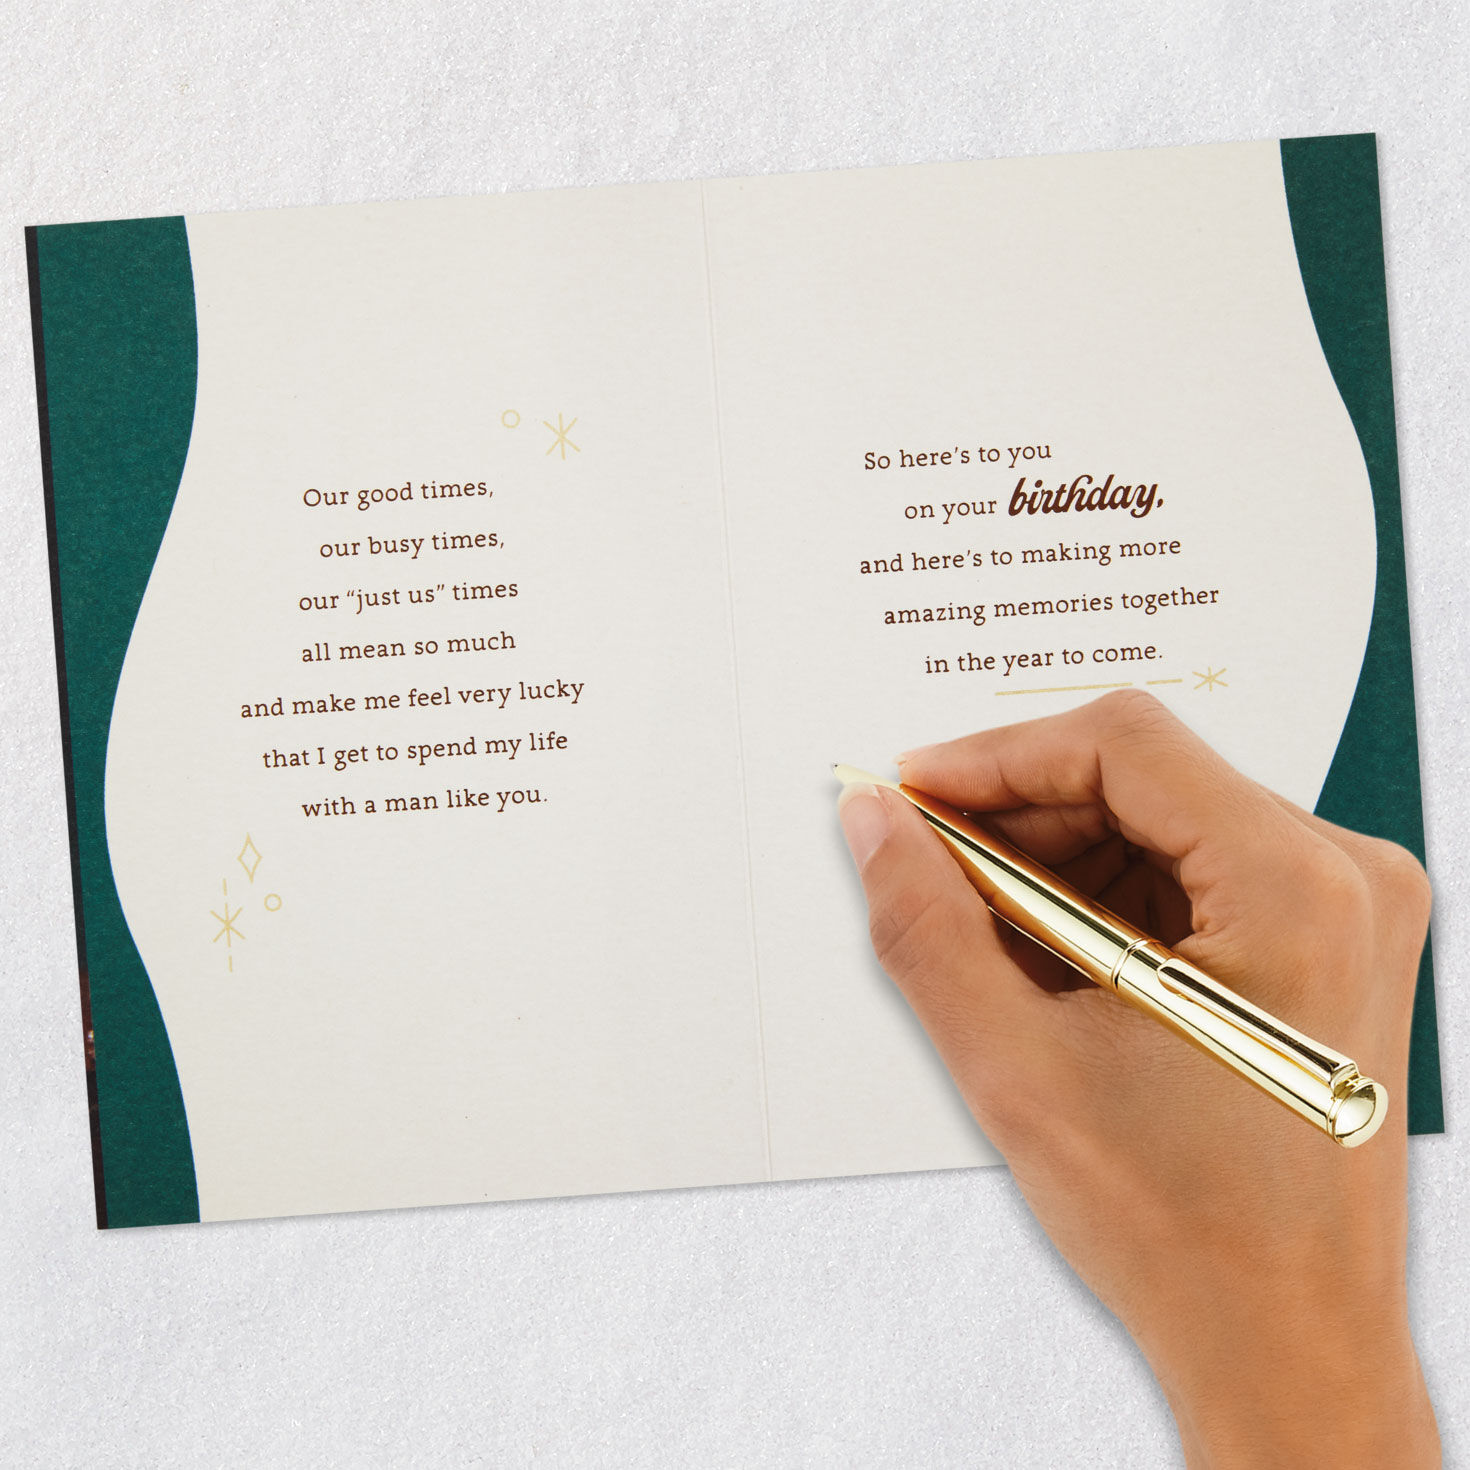 Our good times,
our busy times,
our “just us” times
all mean so much
and make me feel very lucky
that I get to spend my life
with a man like you.
So here’s to you
on your birthday,
and here’s to making more
amazing memories together
in the year to come.